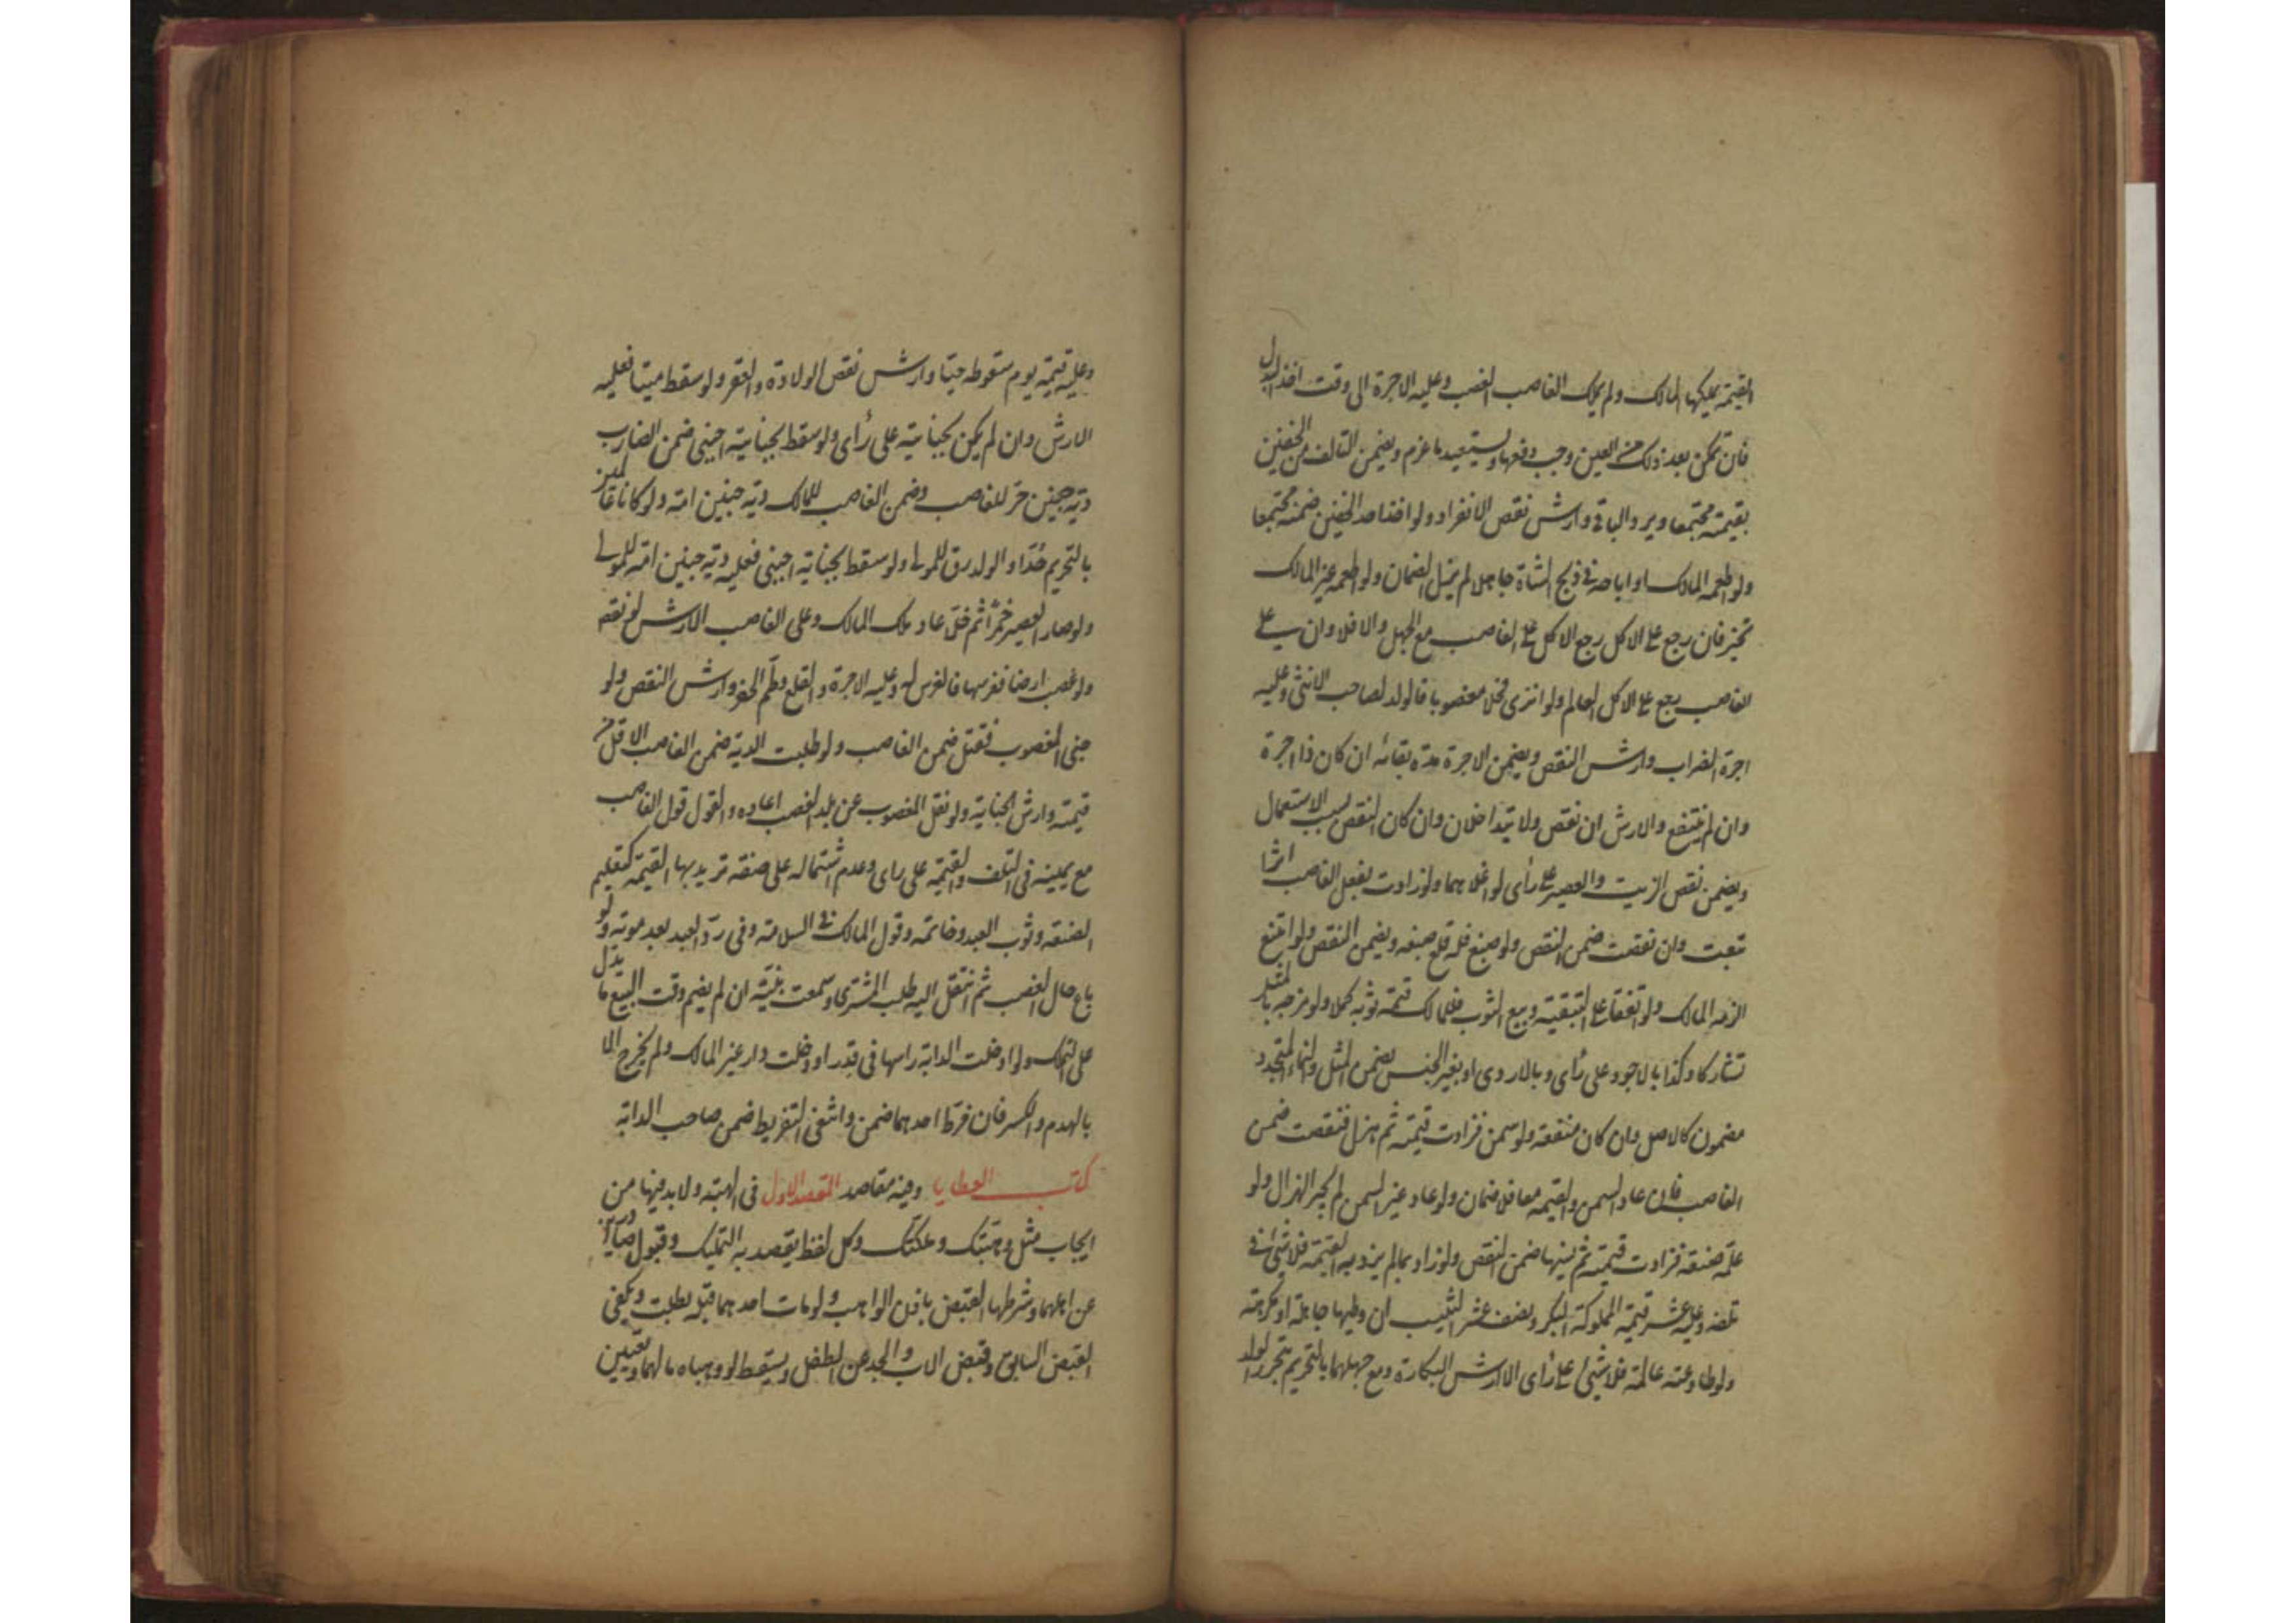 القيمة يملكها المالك ولم يملك الغاصب الغصب وعليه الاجرة الى وقت اخذ البدل
فان تمكن بعد ذلك من العين وجب دفعها ويستعيد ما غرم ويضمن التالف من الخفين
بقيمته مجتمعا ويرد الباقي وارش نقص الانفراد ولو اخذ احد الخفين ضمنه مجتمعا
ولو اطعمه المالك او اباحه في ذبح الشاة جاهلا لم يزل الضمان ولو اطعمه غير المالك
تخير فان رجع على الاكل رجع الاكل على الغاصب مع الجهل والا فلا وان رجع على
الغاصب رجع على الاكل العالم ولو انزى فحلا مغصوبا فالولد لصاحب الانثى وعليه
اجرة الضراب وارش النقص ويضمن الاجرة مدة بقائه ان كان ذا اجرة
وان لم ينتفع والارش ان نقص ولا يتداخلان وان كان النقص بسبب الاستعمال
ويضمن نقص الزيت والعصير على رأى لو اغلاهما ولو زادت بفعل الغاصب اثرا
تبعت وان نقصت ضمن النقص ولو صبغ فله قلع صبغه ويضمن النقص ولو امتنع
الزمه المالك ولو اتفقا على التبقية وبيع الثوب فللمالك قيمة ثوبه كملا ولو مزجه بالمثل
تشاركا وكذا بالاجود على رأى وبالاردى او بغير الجنس يضمن المثل والنماء المتجدد
مضمون كالاصل وان كان منفعة ولو سمن فزادت قيمته ثم هزل فنقصت ضمن
الغاصب فان عاد السمن والقيمة معا فلا ضمان ولو عاد غير السمن لم يجبر الهزال ولو
علمه صنعة فزادت قيمته ثم نسيها ضمن النقص ولو زاد بما لم يزد به القيمة فلا شئ في
تلفه وعليه عشر قيمة المملوكة البكر ونصف عشر الثيب ان وطيها جاهلة او مكرهة
ولو طاوعته عالمة فلا شئ على رأى الا ارش البكارة ومع جهلهما بالتحريم يتحرر الولد
وعليه قيمته يوم سقوطه حيا وارش نقص الولادة والعقر ولو سقط ميتا فعليه
الارش وان لم يكن بجناية على رأى ولو سقط بجناية اجنبي ضمن الضارب
دية جنين حر للغاصب وضمن الغاصب للمالك دية جنين امة ولو كانا عالمين
بالتحريم حُدّا والولد رق للمولى ولو سقط بجناية اجنبي فعليه دية جنين امة للمولى
ولو صار العصير خمرًا ثم خلّ عاد ملك المالك وعلى الغاصب الارش لو نقص
ولو غصب ارضا فغرسها فالغرس له وعليه الاجرة والقلع وطمّ الحفر وارش النقص ولو
جنى المغصوب فقتل ضمن الغاصب ولو طلبت الدية ضمن الغاصب الاقل من
قيمته وارش الجناية ولو نقل المغصوب عن بلد الغصب اعاده والقول قول الغاصب
مع يمينه في التلف والقيمة على راى وعدم اشتماله على صفة تزيد بها القيمة كتعليم
الصنعة وثوب العبد وخاتمه وقول المالك في السلامة وفي ردّ العبد بعد موته ولو
باع حال الغصب ثم انتقل اليه طلب المشترى وسمعت بينته ان لم يضم وقت البيع ما يدل
على التملك ولو ادخلت الدابة راسها في قدر او دخلت دار غير المالك ولم يخرج الا
بالهدم والكسر فان فرّط احدهما ضمن وانتفى التفريط ضمن صاحب الدابة
كتاب العطايا وفيه مقاصد المقصد الاول في الهبة ولا بد فيها من
ايجاب مثل وهبتك وملكتك وكل لفظ يقصد به التمليك وقبول صادرين
عن اهلهما وشرطها القبض باذن الواهب ولو مات احدهما قبله بطلت ويكفى
القبض السابق وقبض الاب والجد عن الطفل ويسقط لو وهباه ما لهما ويتعين